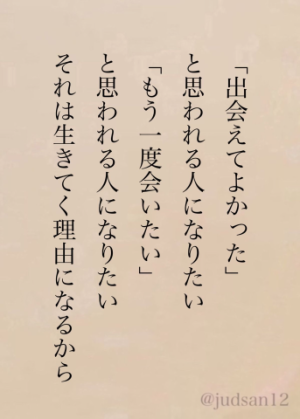 「出会えてよかった」
と思われる人になりたい
「もう一度会いたい」
と思われる人になりたい
それは生きてく理由になるから
@judsan12